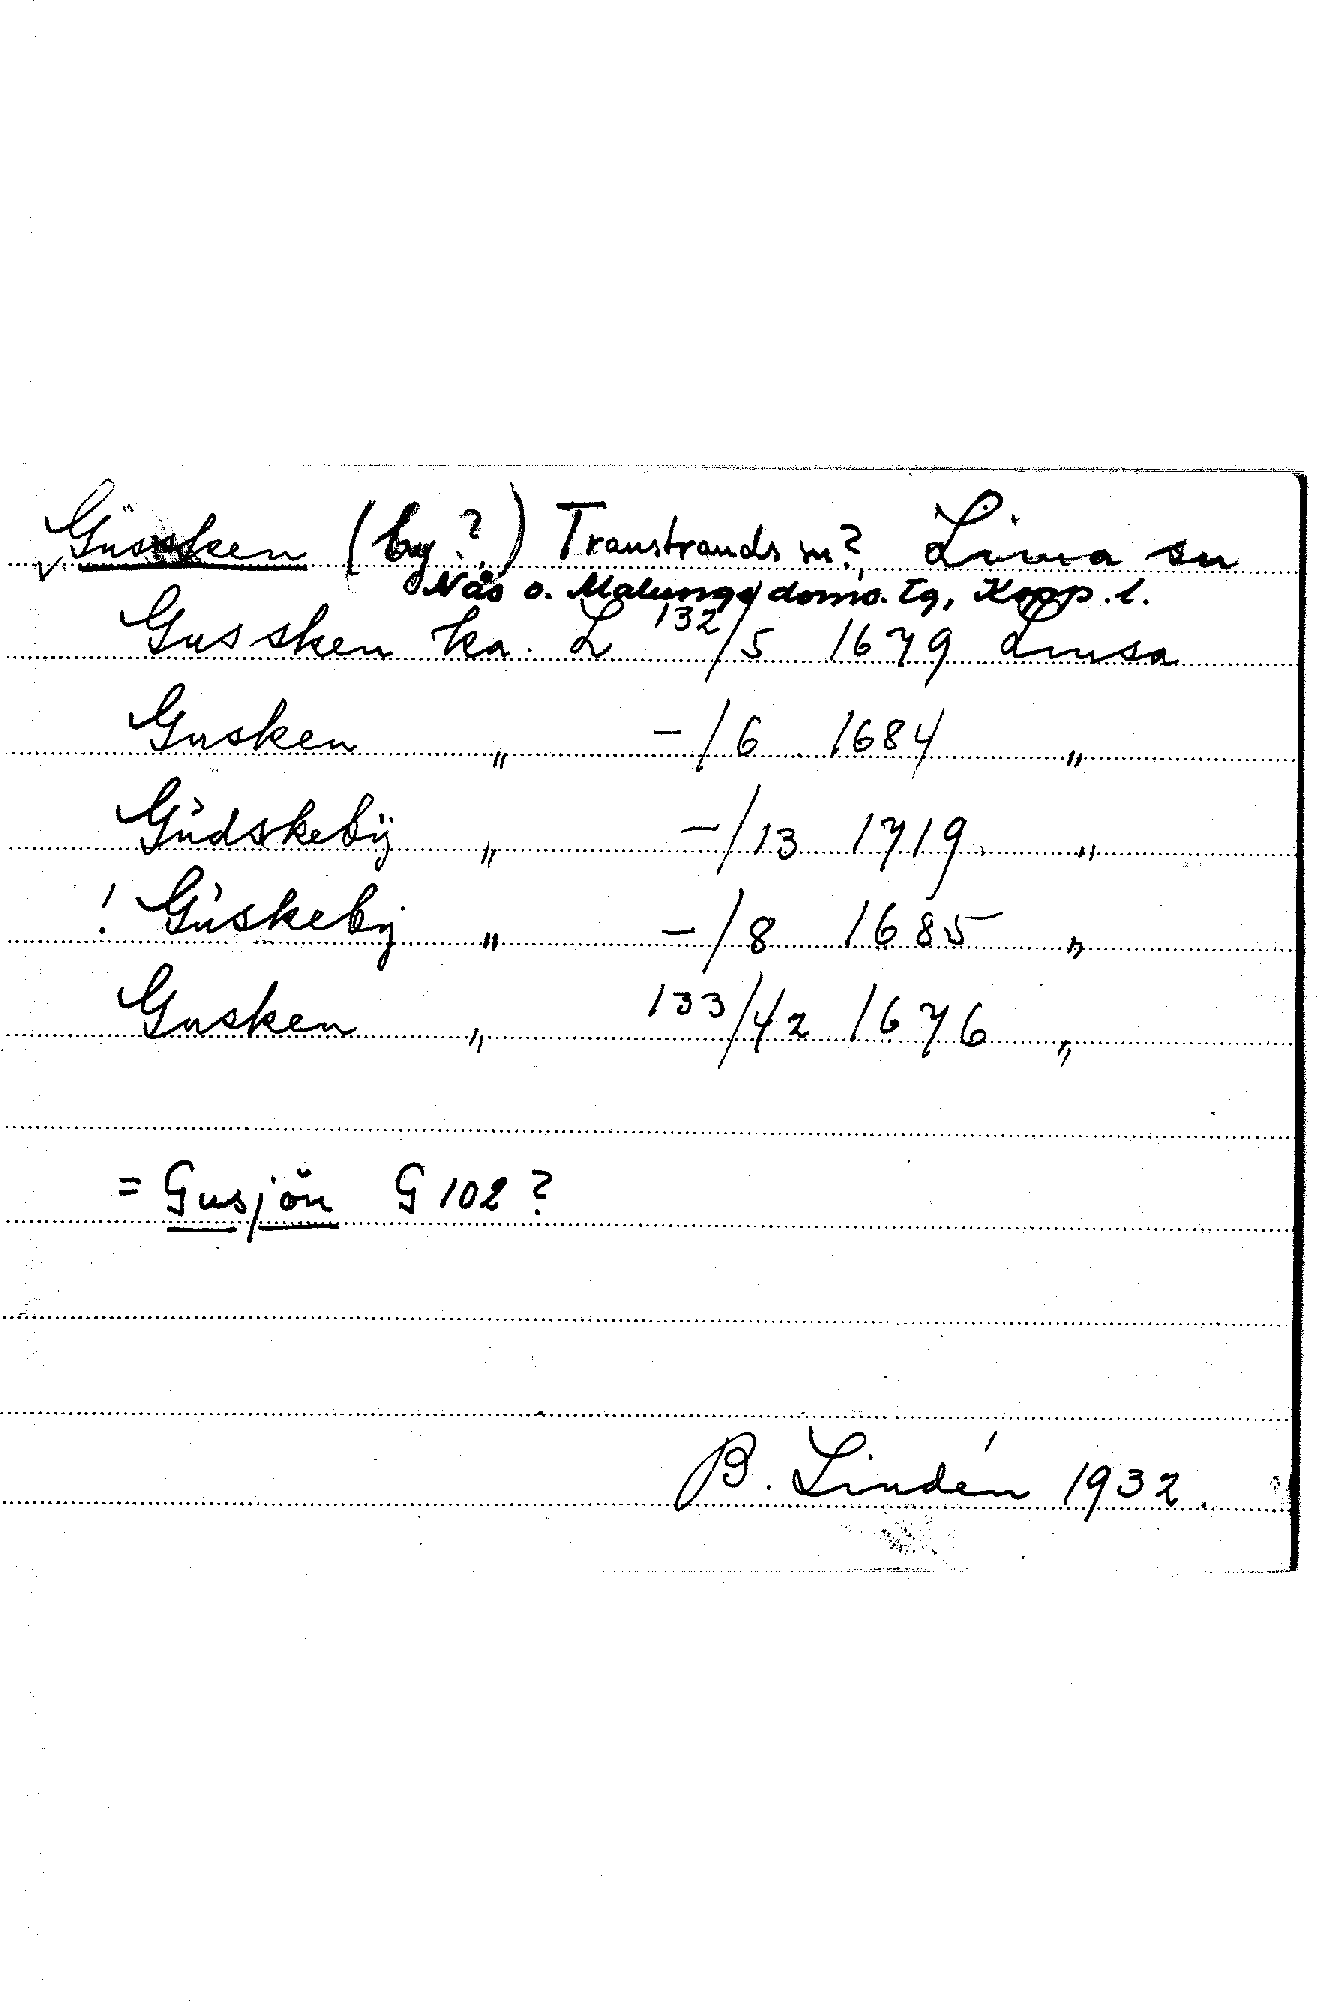 Gussken (by?) Transtrands sn? Lima sn
Nås o. Malungs doms. tg, Kopp. l.
Gussken ka. L 132/5 1679 Limsa
Gusken " -/6 1684 "
Gudskeby " -/13 1719 "
! Guskeby " -/8 1685 "
Gusken " 133/42 1676 "
= Gusjön G 102?
B. Lindén 1932.